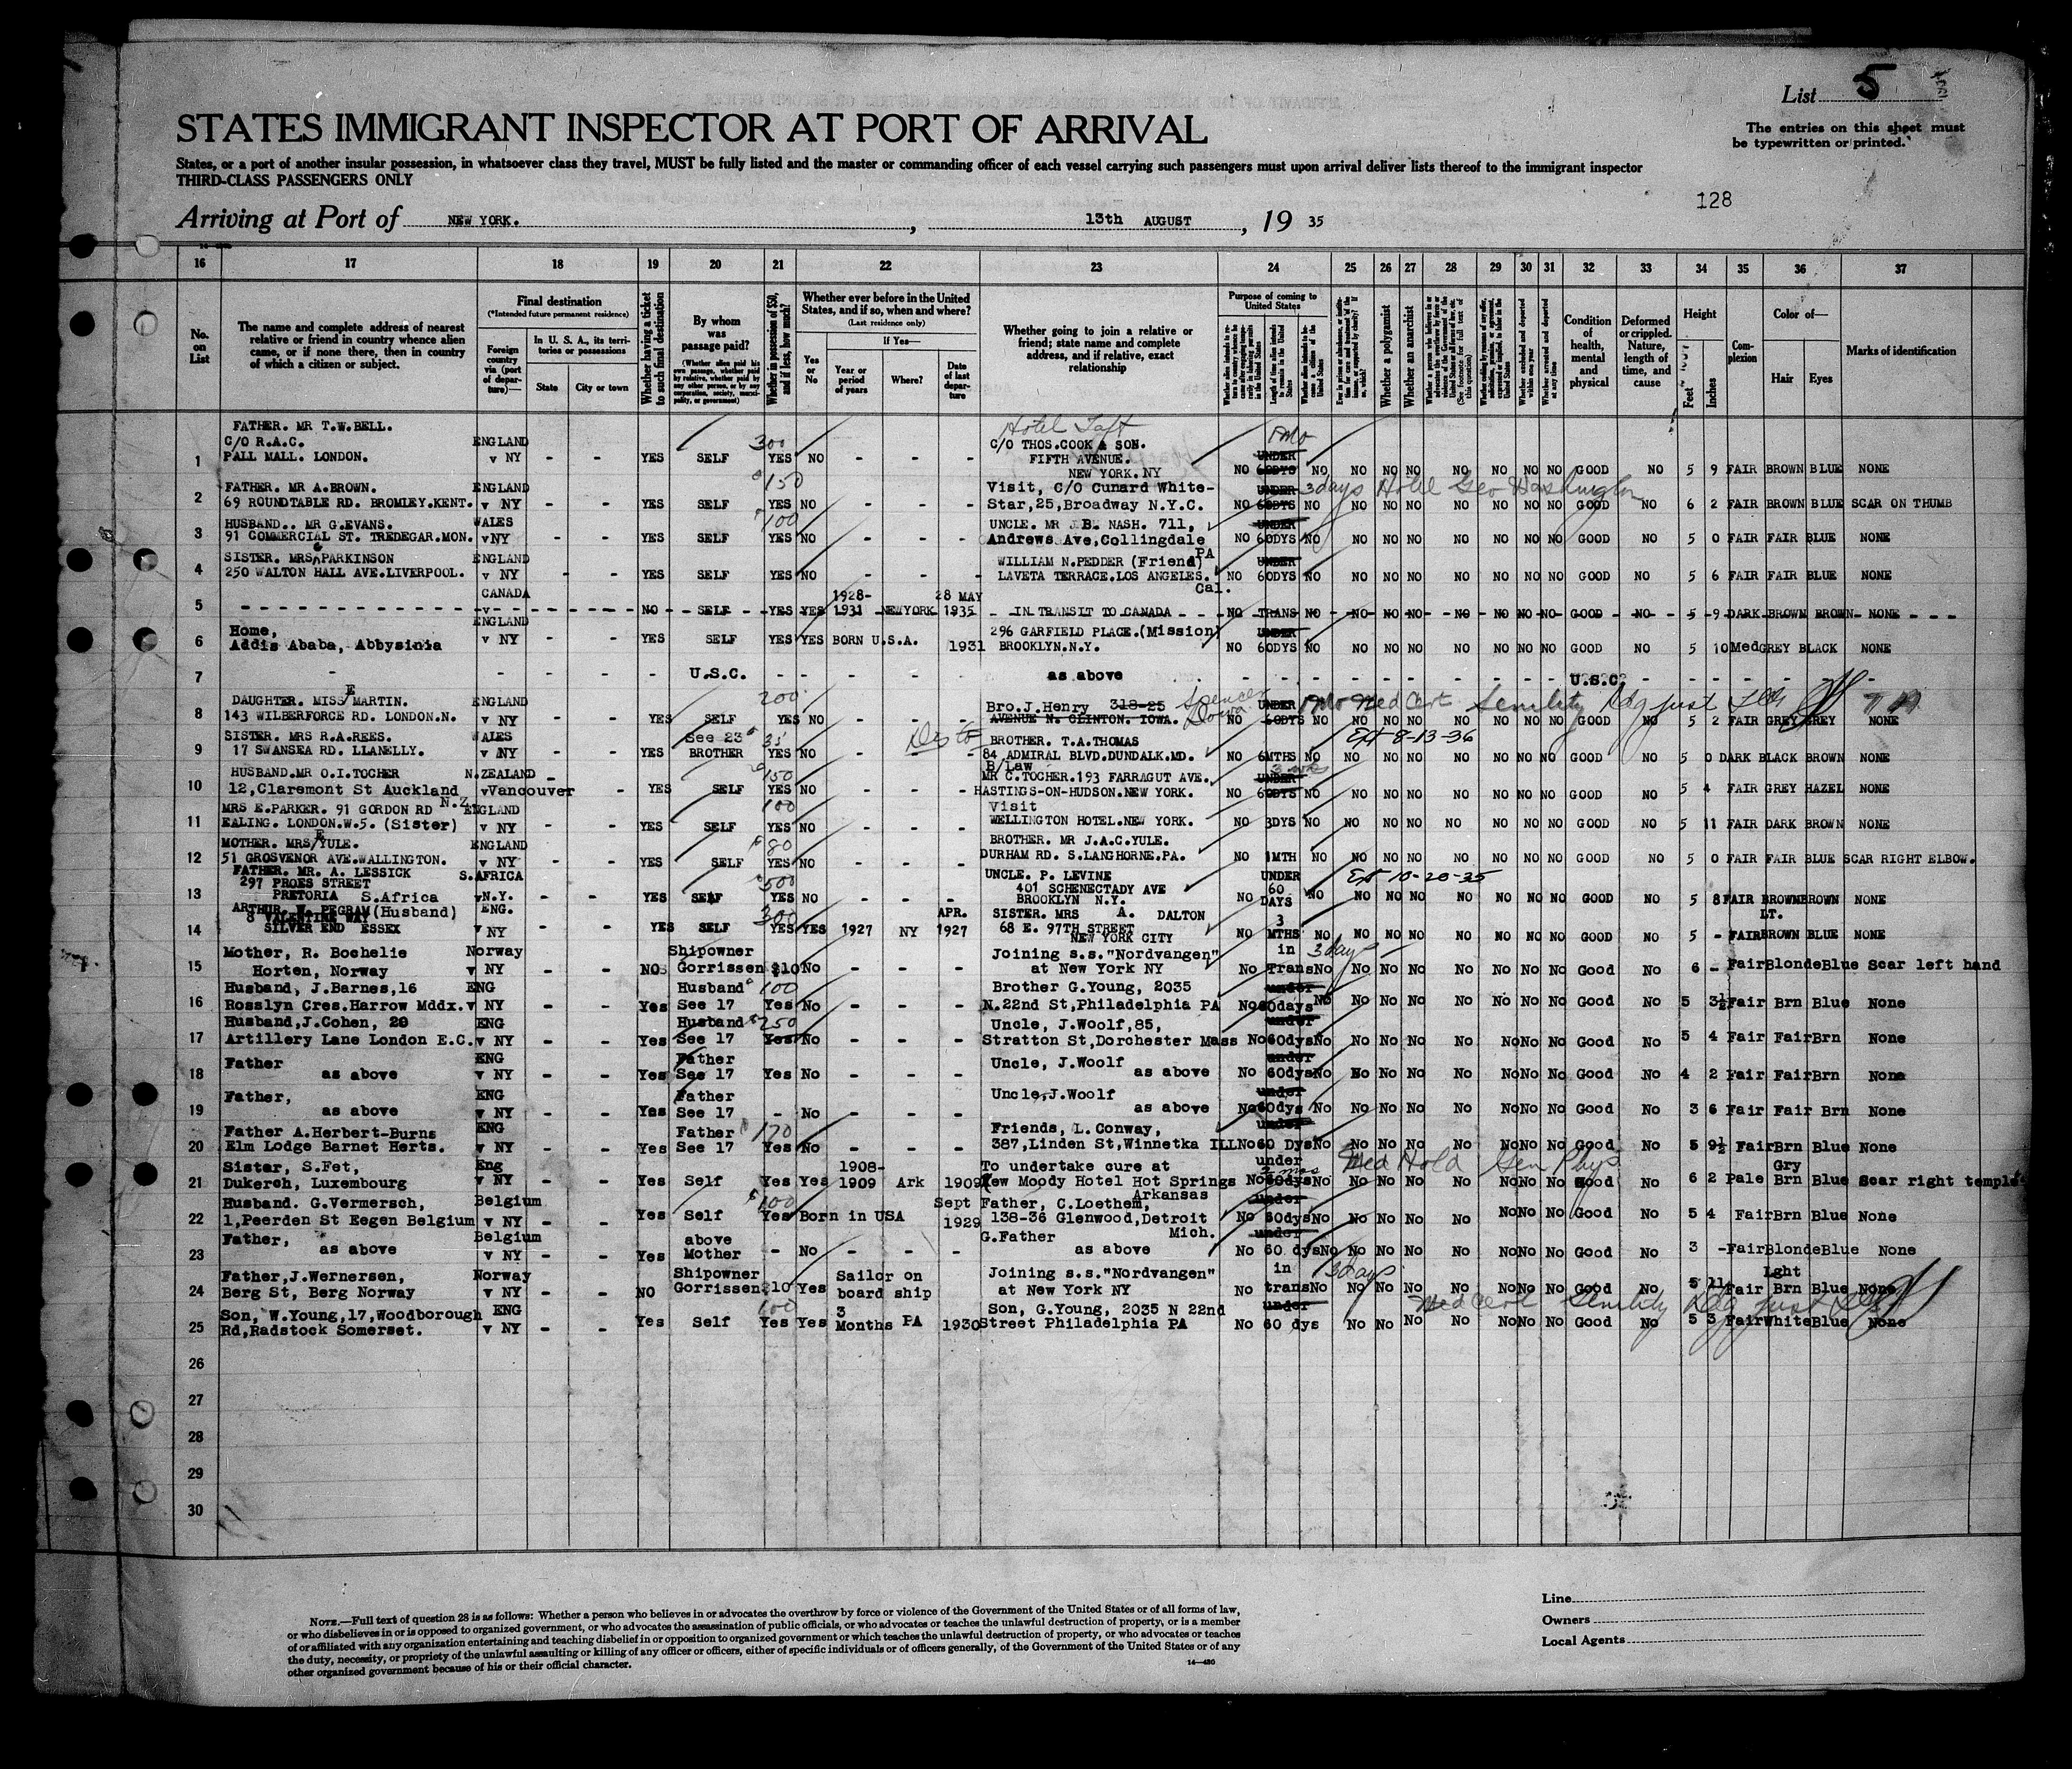 List 5
STATES IMMIGRANT INSPECTOR AT PORT OF ARRIVAL
The entries on this sheet must
be typewritten or printed.
States, or a port of another insular possession, in whatsoever class they travel, MUST be fully listed and the master or commanding officer of each vessel carrying such passengers must upon arrival deliver lists thereof to the immigrant inspector
THIRD-CLASS PASSENGERS ONLY
128
Arriving at Port of NEW YORK. , 13th AUGUST , 19 35
16 17 18 19 20 21 22 23 24 25 26 27 28 29 30 31 32 33 34 35 36 37
No. on List
The name and complete address of nearest relative or friend in country whence alien came, or if none there, then in country of which a citizen or subject.
Final destination
(*Intended future permanent residence)
Foreign country via (port of departure)—
In U. S. A., its territories or possessions
State
City or town
Whether having a ticket to such final destination
By whom was passage paid?
(Whether alien paid his own passage, whether paid by relative, whether paid by any other person, or by any corporation, society, municipality, or government)
Whether in possession of $50, and if less, how much?
Whether ever before in the United States, and if so, when and where?
(Last residence only)
Yes or No
If Yes—
Year or period of years
Where?
Date of last departure
Whether going to join a relative or friend; state name and complete address, and if relative, exact relationship
Purpose of coming to United States
Length of time alien intends to remain in the United States
Whether a polygamist
Whether an anarchist
Condition of health, mental and physical
Deformed or crippled. Nature, length of time, and cause
Height
Feet
Inches
Complexion
Color of—
Hair
Eyes
Marks of identification
FATHER. MR T.W.BELL. Hotel Taft
C/O R.A.C. ENGLAND 300 C/O THOS.COOK & SON.
1 PALL MALL. LONDON. v NY - - YES SELF YES NO - - - FIFTH AVENUE. UNDER
NEW YORK. NY NO 60DYS NO NO NO NO NO NO NO NO GOOD NO 5 9 FAIR BROWN BLUE NONE
FATHER. MR A.BROWN. ENGLAND 150 Visit, C/O Cunard White- UNDER 3days Hotel Geo Washington
2 69 ROUNDTABLE RD. BROMLEY.KENT. v NY - - YES SELF YES NO - - - Star,25,Broadway N.Y.C. NO 60DYS NO NO NO NO NO NO NO NO GOOD NO 6 2 FAIR BROWN BLUE SCAR ON THUMB
HUSBAND.. MR G.EVANS. WALES 100 UNCLE. MR J.B. NASH. 711, UNDER
3 91 COMMERCIAL ST. TREDEGAR.MON. v NY - - YES SELF YES NO - - - Andrews Ave,Collingdale PA NO 60DYS NO NO NO NO NO NO NO NO GOOD NO 5 0 FAIR FAIR BLUE NONE
SISTER. MRS PARKINSON ENGLAND WILLIAM N.PEDDER (Friend) UNDER
4 250 WALTON HALL AVE.LIVERPOOL. v NY - - YES SELF YES NO - - - LAVETA TERRACE.LOS ANGELES. Cal. NO 60DYS NO NO NO NO NO NO NO NO GOOD NO 5 6 FAIR FAIR BLUE NONE
CANADA 1928- 28 MAY
5 v NO SELF YES YES 1931 NEWYORK 1935 IN TRANSIT TO CANADA NO TRANS NO NO NO NO NO NO NO NO GOOD NO 5 9 DARK BROWN BROWN NONE
Home, ENGLAND 296 GARFIELD PLACE.(Mission) UNDER
6 Addis Ababa, Abbysinia v NY - - YES SELF YES YES BORN U.S.A. 1931 BROOKLYN.N.Y. NO 60DYS NO NO NO NO NO NO NO NO GOOD NO 5 10 Med GREY BLACK NONE
7 - - - - - U.S.C. - - - - - as above - - - - - - - - - - U.S.C. - - - - - - -
DAUGHTER. MISS E MARTIN. ENGLAND 200 Bro.J.Henry 318-25 Spencer UNDER Med Cert Senility
8 143 WILBERFORCE RD. LONDON.N. v NY - - YES SELF YES NO - - - AVENUE N. CLINTON. IOWA. Iowa NO 60DYS NO NO NO NO NO NO NO NO GOOD NO 5 2 FAIR GREY GREY NONE
SISTER. MRS R.A.REES. WALES See 23 35 BROTHER. T.A.THOMAS Ext 8-13-36
9 17 SWANSEA RD. LLANELLY. v NY - - YES BROTHER YES NO - - - 84 ADMIRAL BLVD.DUNDALK.MD. NO 6MTHS NO NO NO NO NO NO NO NO GOOD NO 5 0 DARK BLACK BROWN NONE
HUSBAND.MR O.I.TOCHER N.ZEALAND - 150 B/Law MR C.TOCHER.193 FARRAGUT AVE. UNDER
10 12,Claremont St Auckland N.Z. v Vancouver - YES SELF YES NO - - - HASTINGS-ON-HUDSON.NEW YORK. NO 60DYS NO NO NO NO NO NO NO NO GOOD NO 5 4 FAIR GREY HAZEL NONE
MRS E.PARKER. 91 GORDON RD ENGLAND 100 Visit
11 EALING. LONDON.W.5. (Sister) v NY - - YES SELF YES NO - - - WELLINGTON HOTEL.NEW YORK. NO 3DYS NO NO NO NO NO NO NO NO GOOD NO 5 11 FAIR DARK BROWN NONE
MOTHER. MRS E YULE. ENGLAND 80 BROTHER. MR J.A.C.YULE.
12 51 GROSVENOR AVE.WALLINGTON. v NY - - YES SELF YES NO - - - DURHAM RD. S.LANGHORNE.PA. NO 1MTH NO NO NO NO NO NO NO NO GOOD NO 5 0 FAIR FAIR BLUE SCAR RIGHT ELBOW.
FATHER. MR. A. LESSICK S.AFRICA 500 UNCLE. P. LEVINE UNDER Ext 10-20-35
297 PROES STREET 401 SCHENECTADY AVE 60
13 PRETORIA S.Africa v N.Y. - - YES SELF YES NO - - - BROOKLYN N.Y. NO DAYS NO NO NO NO NO NO NO NO GOOD NO 5 8 FAIR BROWN BROWN NONE
ARTHUR. W. PEGRAM (Husband) ENG. 300 APR. SISTER. MRS A. DALTON 3 LT.
8 VALENTINE WAY 68 E. 97TH STREET
14 SILVER END ESSEX v NY - - YES SELF YES YES 1927 NY 1927 NEW YORK CITY NO MTHS NO NO NO NO NO NO NO NO GOOD NO 5 - FAIR BROWN BLUE NONE
Mother, R. Bochelie Norway Shipowner Joining s.s."Nordvangen" in 3days
15 Horten, Norway v NY - - NO Gorrissen $10 No - - - at New York NY No Trans No No No No No No No No Good No 6 - Fair Blonde Blue Scar left hand
Husband, J.Barnes,16 ENG Husband 100 Brother G.Young, 2035 under
16 Rosslyn Cres.Harrow Mddx. v NY - - Yes See 17 Yes No - - - N.22nd St,Philadelphia PA No 60days No No No No No No No No Good No 5 3½ Fair Brn Blue None
Husband,J.Cohen, 20 ENG Husband 250 Uncle, J.Woolf,85, under
17 Artillery Lane London E.C. v NY - - Yes See 17 Yes No - - - Stratton St,Dorchester Mass No 60dys No No No No No No No No Good No 5 4 Fair Fair Brn None
Father ENG Father Uncle, J.Woolf under
18 as above v NY - - Yes See 17 Yes No - - - as above No 60dys No No No No No No No No Good No 4 2 Fair Fair Brn None
Father, ENG Father Uncle,J.Woolf under
19 as above v NY - - Yes See 17 - No - - - as above No 60dys No No No No No No No No Good No 3 6 Fair Fair Brn None
Father A.Herbert-Burns ENG Father 170 Friends, L. Conway, under
20 Elm Lodge Barnet Herts. v NY - - Yes See 17 Yes No - - - 387,Linden St,Winnetka ILL No 60 Dys No No No No No No No No Good No 5 9½ Fair Brn Blue None
Sister, S.Fet, Eng 1908- To undertake cure at under Med Hold Gen Phys Gry
21 Dukerch, Luxembourg v NY - - Yes Self Yes Yes 1909 Ark 1909 New Moody Hotel Hot Springs Arkansas No 60dys No No No No No No No No Good No 6 2 Pale Brn Blue Scar right temple
Husband. G.Vermersch, Belgium 100 Sept Father, C.Loethem, under
22 1,Peerden St Eegen Belgium v NY - - Yes Self Yes Born in USA 1929 138-36 Glenwood,Detroit Mich. No 60dys No No No No No No No No Good No 5 4 Fair Brn Blue None
Father, Belgium above G.Father under
23 as above v NY - - Yes Mother - No - - - as above No 60 dys No No No No No No No No Good No 3 - Fair Blonde Blue None
Father,J.Wernersen, Norway Shipowner Sailor on Joining s.s."Nordvangen" in 3days Lght
24 Berg St, Berg Norway v NY - - NO Gorrissen $10 Yes board ship at New York NY No trans No No No No No No No No Good No 5 11 Fair Brn Blue None
Son, W.Young,17,Woodborough ENG 100 3 Son, G.Young, 2035 N 22nd under Med Cert Senility
25 Rd,Radstock Somerset. v NY - - Yes Self Yes Yes Months PA 1930 Street Philadelphia PA No 60 dys No No No No No No No Good No 5 3 Fair White Blue None
26
27
28
29
30
NOTE.—Full text of question 28 is as follows: Whether a person who believes in or advocates the overthrow by force or violence of the Government of the United States or of all forms of law,
or who disbelieves in or is opposed to organized government, or who advocates the assassination of public officials, or who advocates or teaches the unlawful destruction of property, or is a member
of or affiliated with any organization entertaining and teaching disbelief in or opposition to organized government or which teaches the unlawful destruction of property, or who advocates or teaches
the duty, necessity, or propriety of the unlawful assaulting or killing of any officer or officers, either of specific individuals or of officers generally, of the Government of the United States or of any
other organized government because of his or their official character.
14—430
Line
Owners
Local Agents